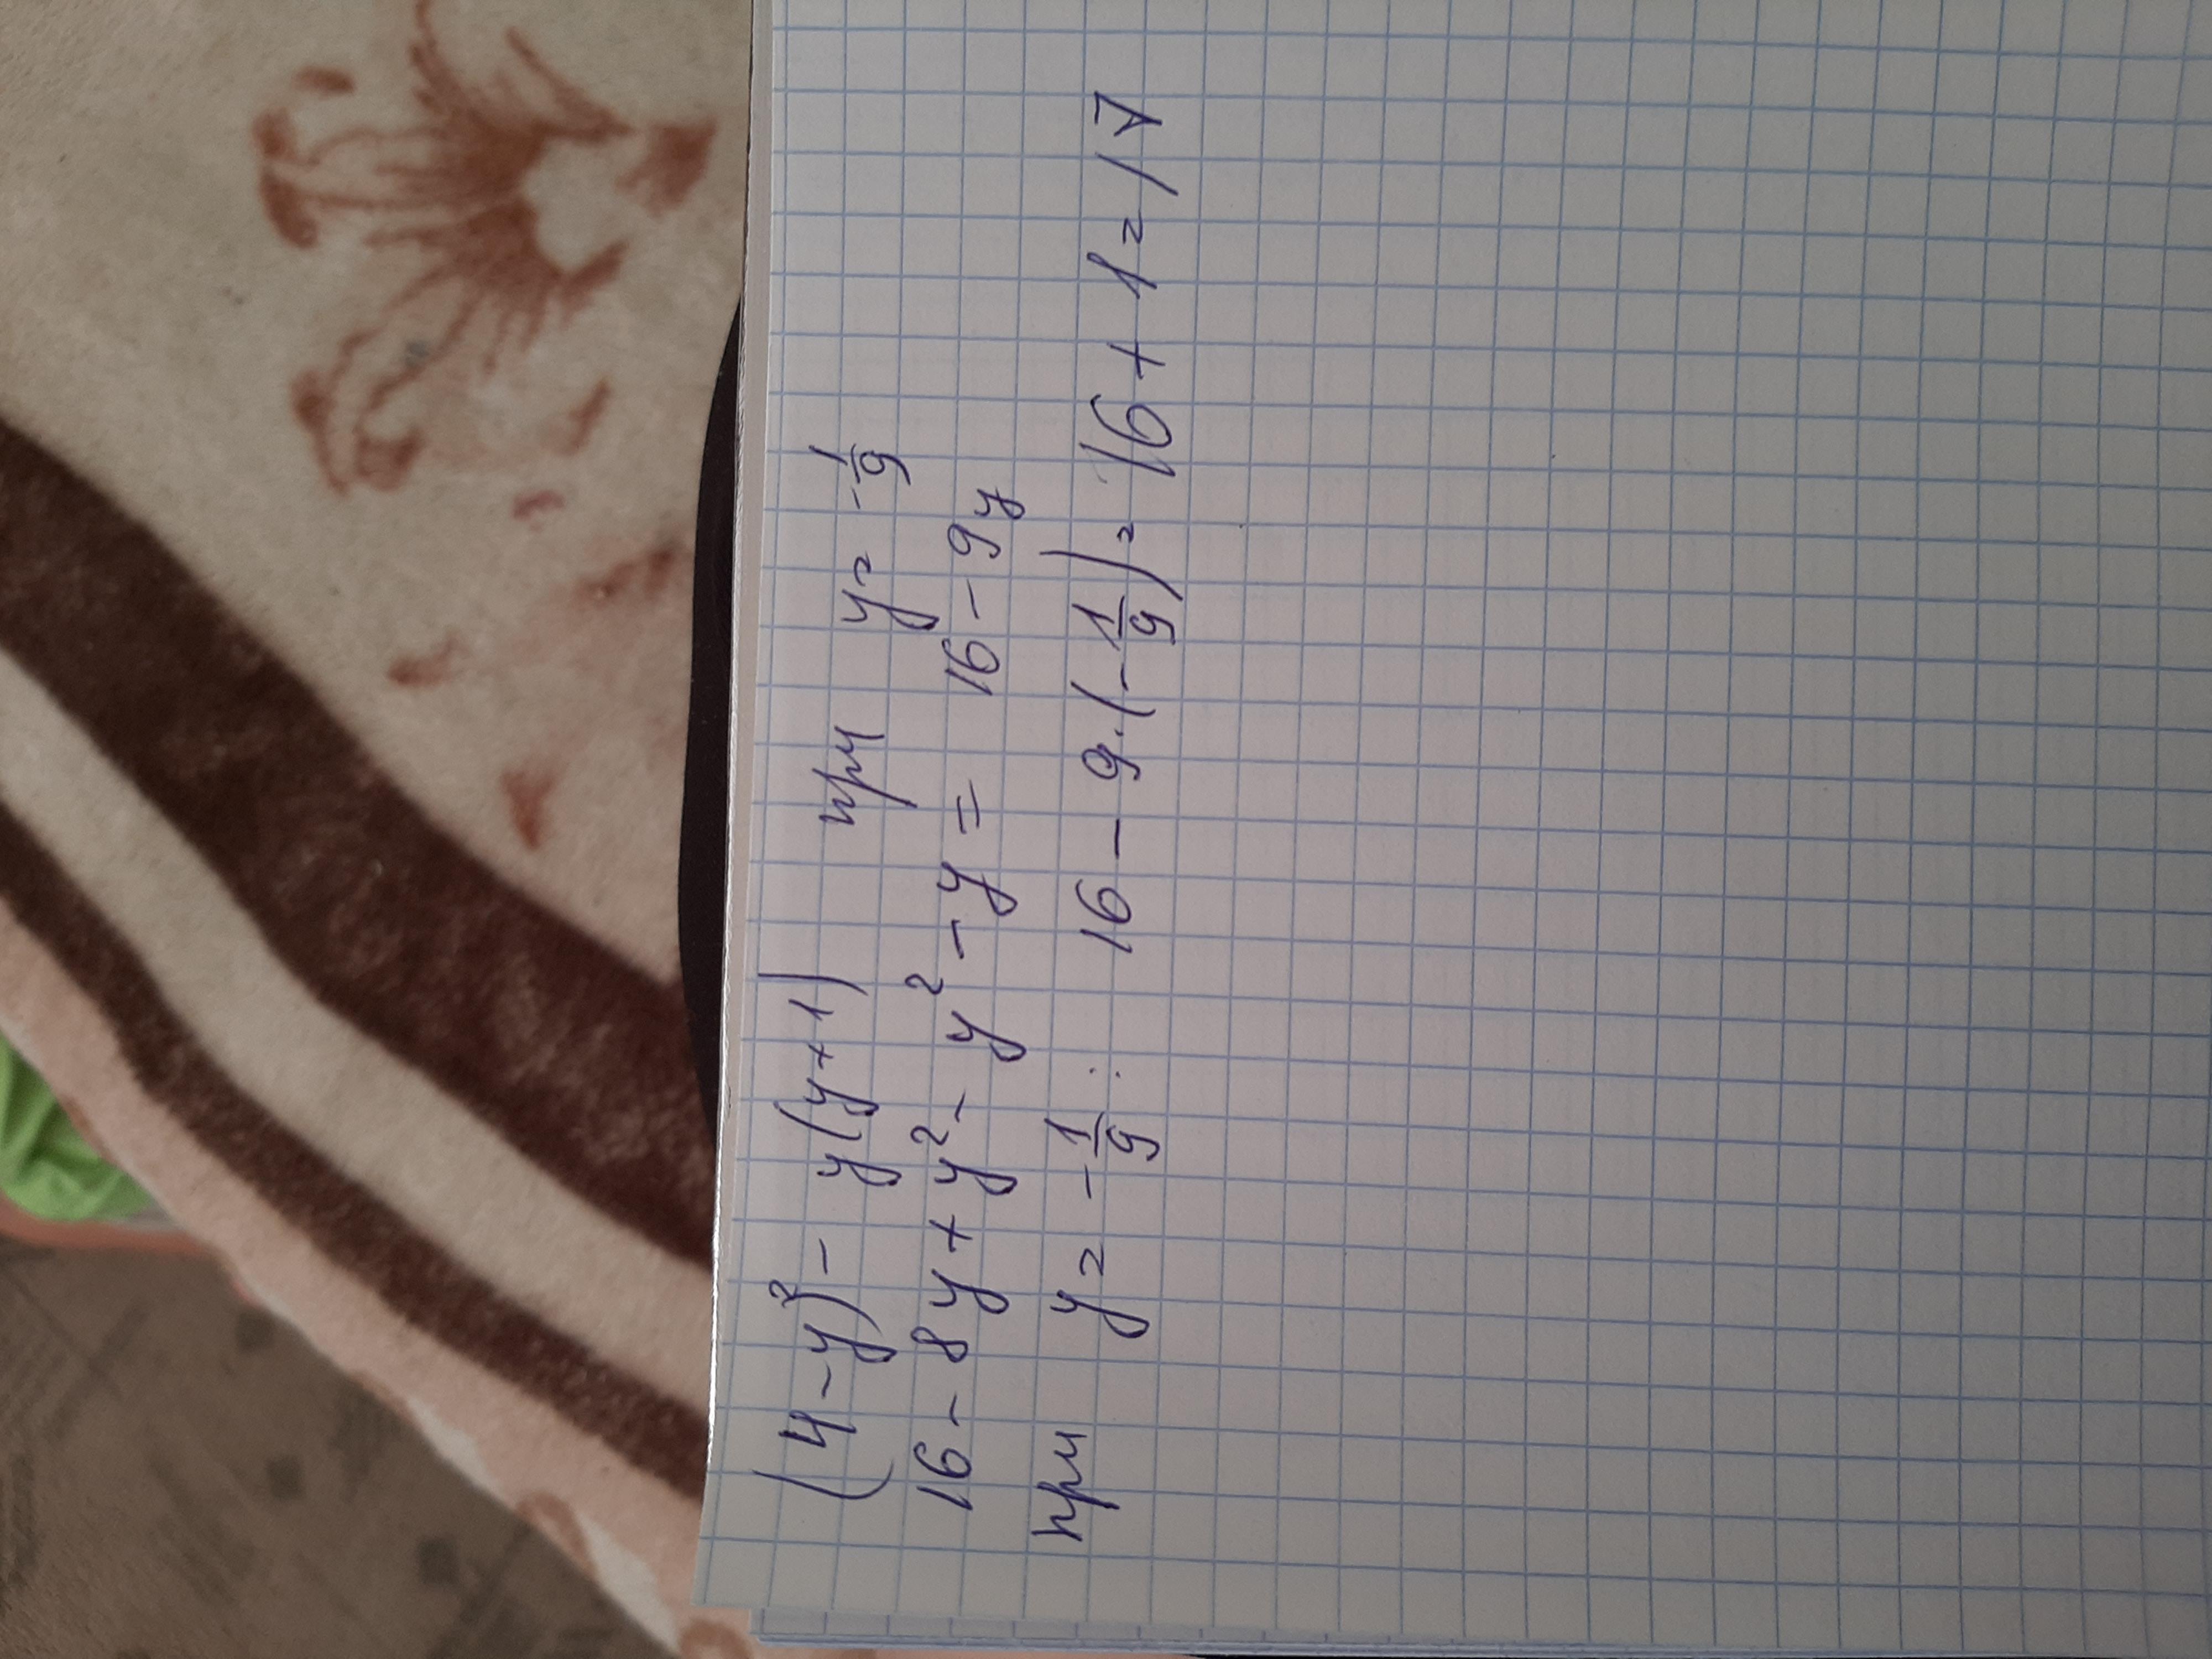 (4-y)² - y(y+1) при y = -1/9
16 - 8y + y² - y² - y = 16 - 9y
при y = -1/9 : 16 - 9·(-1/9) = 16 + 1 = 17